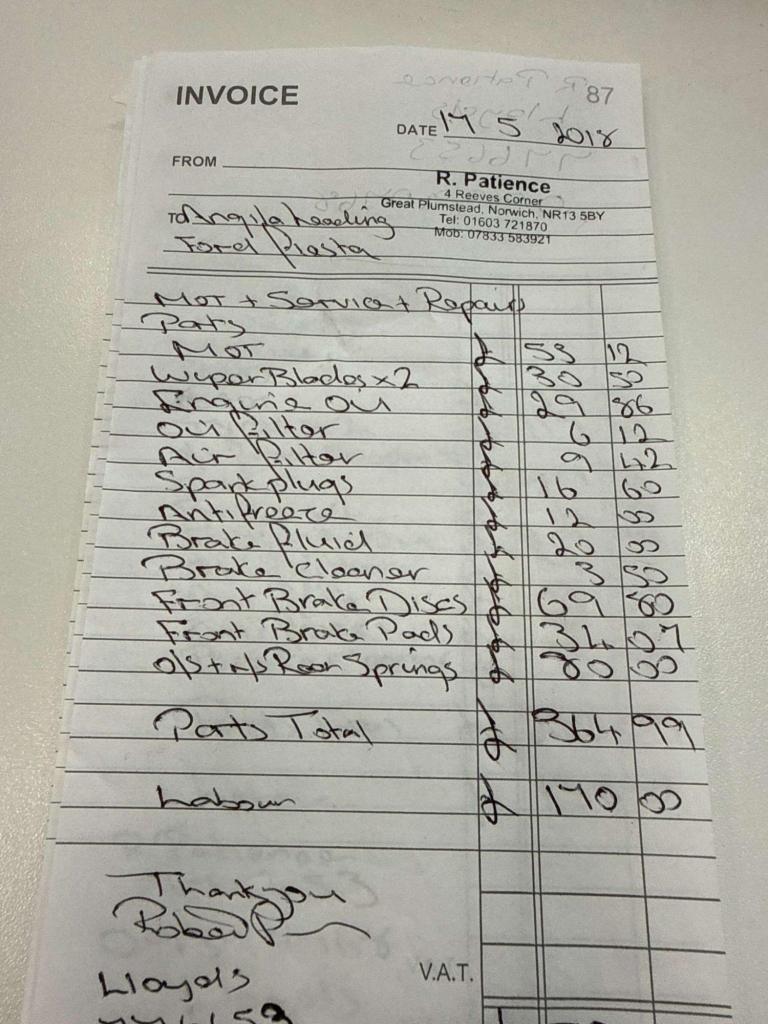 INVOICE 87
DATE 17 5 2018
FROM
R. Patience
4 Reeves Corner
Great Plumstead, Norwich, NR13 5BY
Tel: 01603 721870
Mob: 07833 583921
TO Angila Leading
Ford Fiesta
MOT + Service + Repairs
Parts
MOT £ 53 12
Wiper Blades x2 £ 30 50
Engine Oil £ 29 86
Oil Filter £ 6 12
Air Filter £ 9 42
Spark plugs £ 16 60
Antifreeze £ 12 00
Brake Fluid £ 20 00
Brake Cleaner £ 3 50
Front Brake Discs £ 69 80
Front Brake Pads £ 34 07
O/S + N/S Rear Springs £ 80 00
Parts Total £ 364 99
Labour £ 170 00
Thankyou
Robert P
V.A.T.
Lloyds